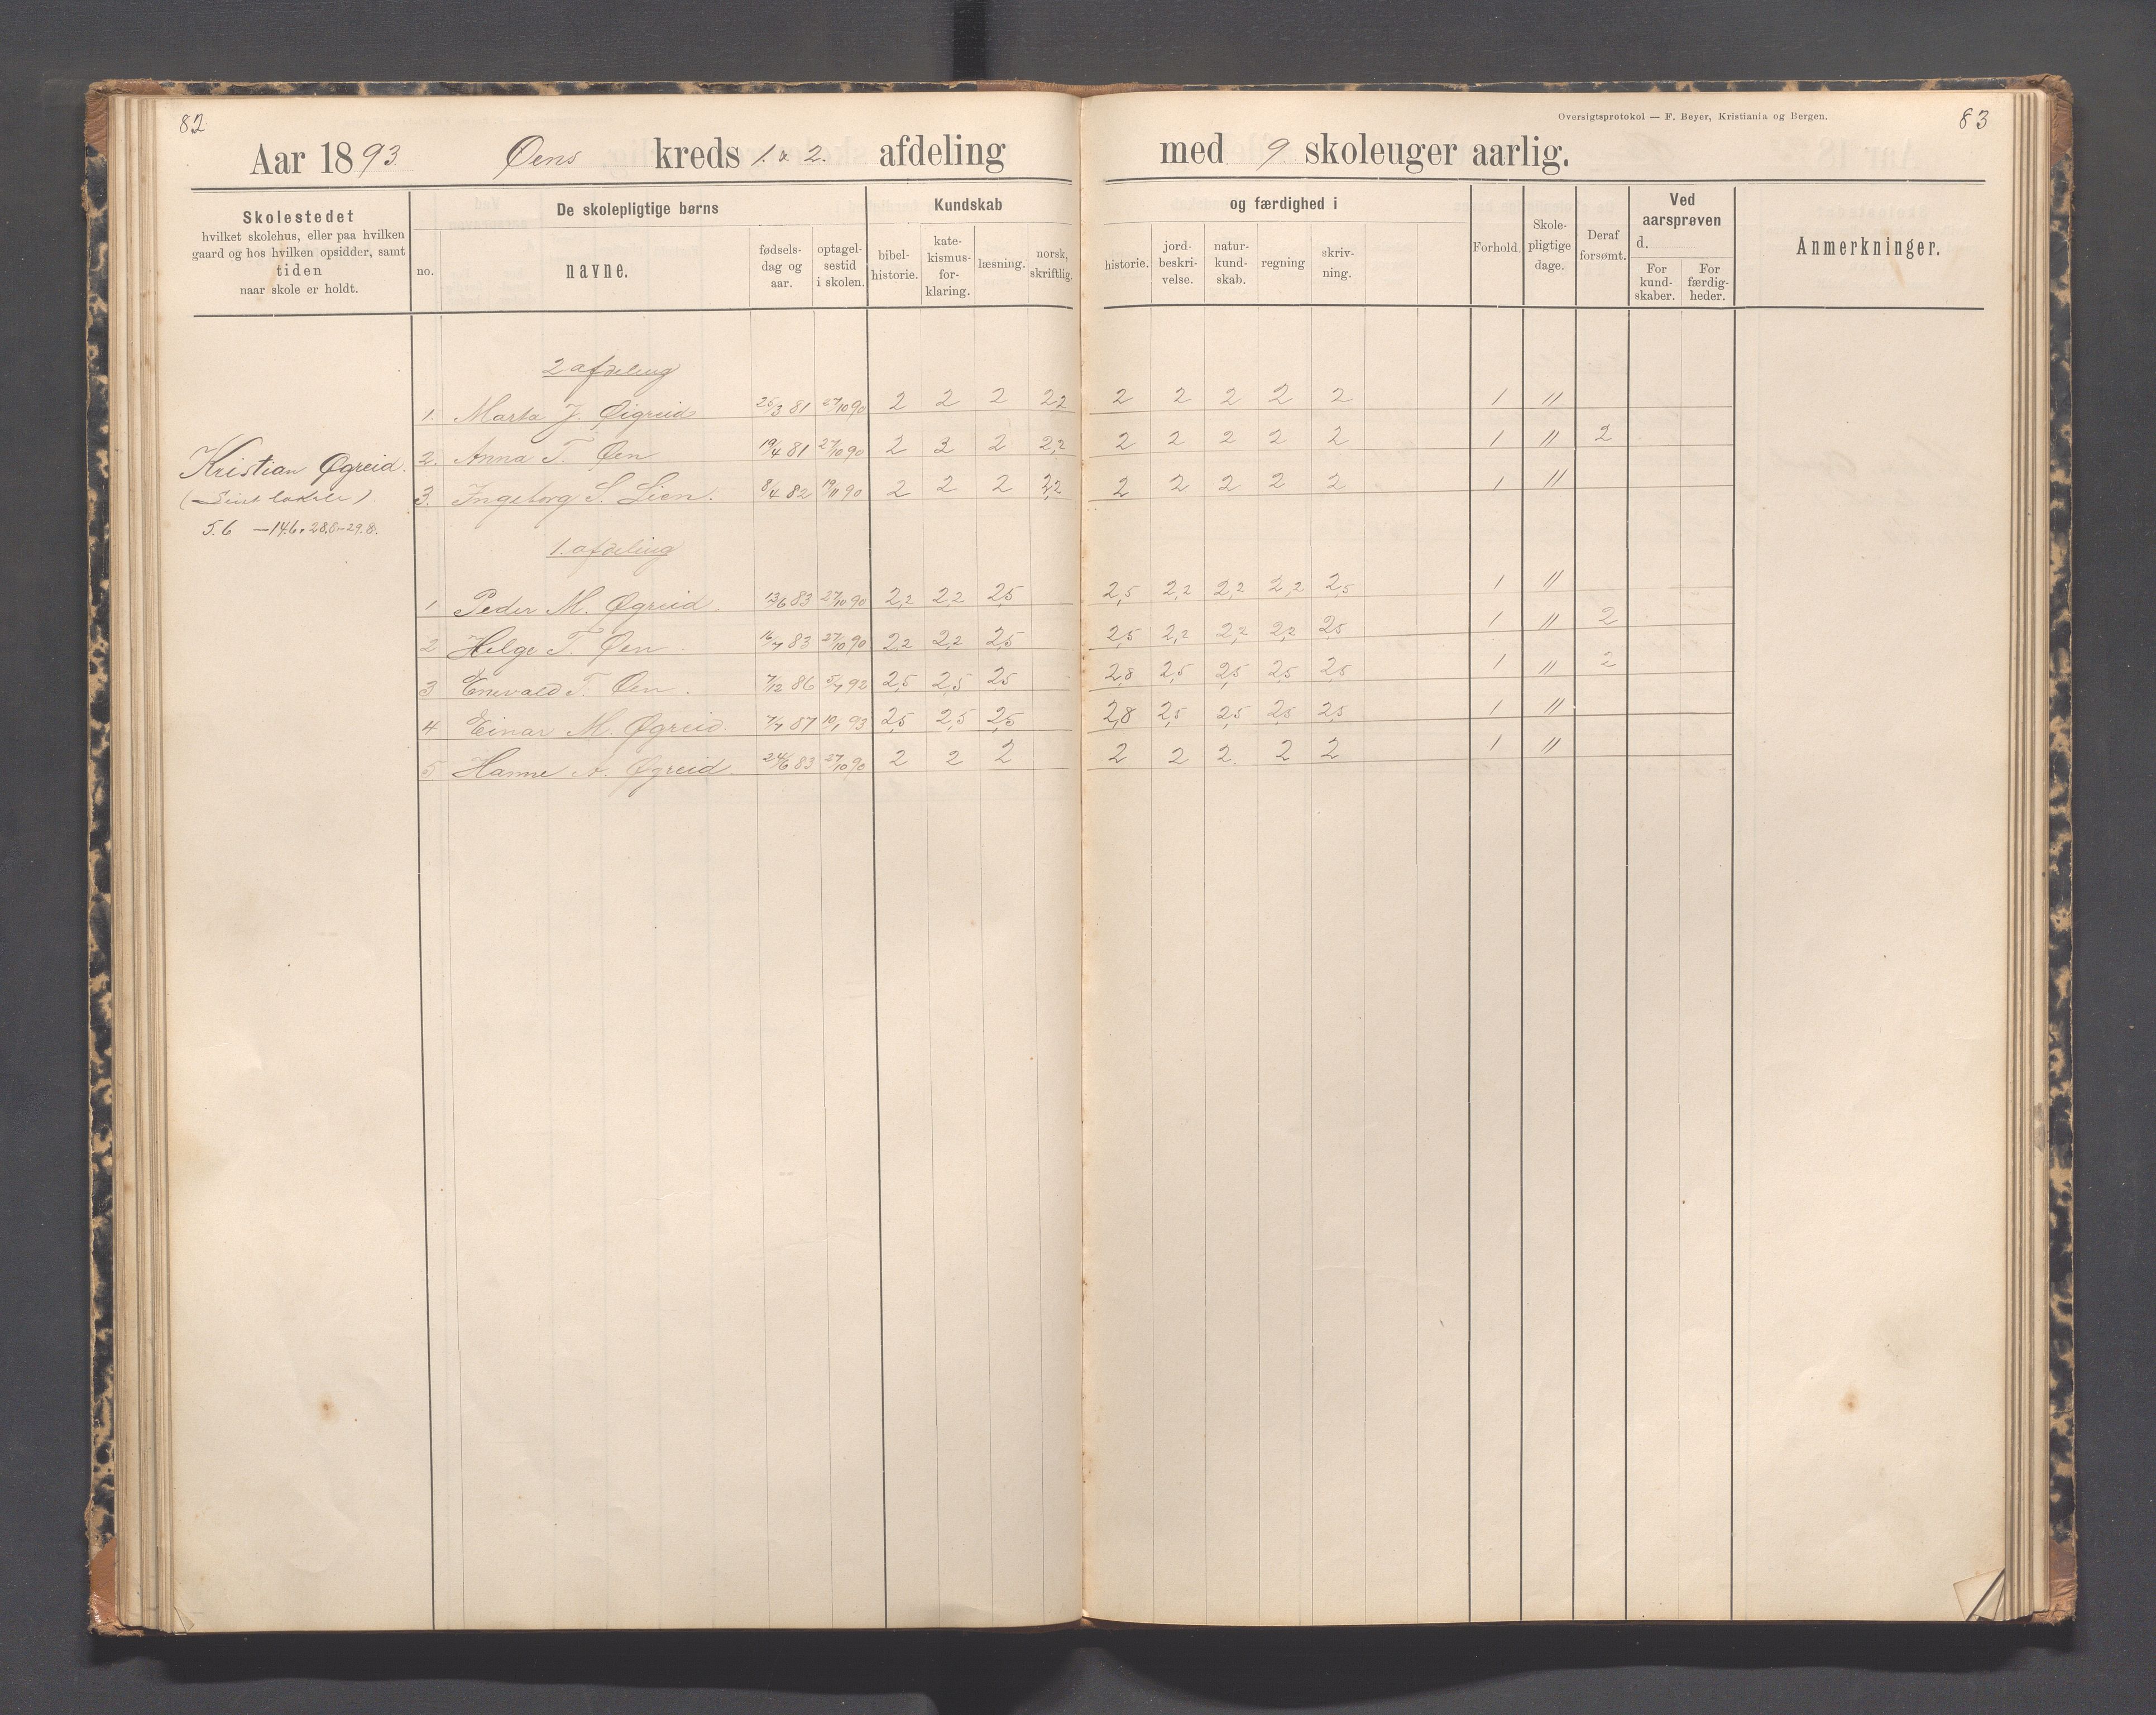 82
Aar 1893 Øens kreds 1. & 2. afdeling
Skolestedet
hvilket skolehus, eller paa hvilken
gaard og hos hvilken opsidder, samt
tiden
naar skole er holdt.
De skolepligtige børns
no.
navne.
fødsels-
dag og
aar.
optagel-
sestid
i skolen.
Kundskab
bibel-
historie.
kate-
kismus-
for-
klaring.
læsning.
norsk,
skriftlig.
Kristian Øgreid.
5.6 — 14.6 . 28.8 — 29.8.
2 afdeling
1. Marta J. Øigreid 25/3 81 27/10 90 2 2 2 2,2
2. Anna T. Øen 19/4 81 27/10 90 2 2 2,2
3. Ingeborg S. Lien. 8/4 82 19/11 90 2 2 2 2,2
1. afdeling
1 Peder M. Øgreid. 13/6 83 27/10 90 2,2 2,2 2,5
2 Helge T. Øen. 16/7 83 27/10 90 2,2 2,2 2,5
3 Enevald T. Øen. 7/12 86 5/7 92 2,5 2,5 2,5
4 Einar M. Øgreid. 7/7 87 93 2,5 2,5 2,5
5 Hanne A. Øgreid. 24/6 83 27/10 90 2 2 2
Oversigtsprotokol — F. Beyer, Kristiania og Bergen.
83
med 9 skoleuger aarlig.
og færdighed i
historie.
jord-
beskri-
velse.
natur-
kund-
skab.
regning
skriv-
ning.
Forhold.
Skole-
pligtige
dage.
Deraf
forsømt.
Ved
aarsprøven
d.
For
kund-
skaber.
For
færdig-
heder.
Anmerkninger.
2 2 2 2 2 1 11
2 2 2 2 2 1 11 2
2 2 2 2 2 1 11
2,5 2,2 2,2 2,2 2,5 1 11
2,5 2,2 2,2 2,2 2,5 1 11 2
2,8 2,5 2,5 2,5 2,5 1 11 2
2,8 2,5 2,5 2,5 2,5 1 11
2 2 2. 2 2 1 11